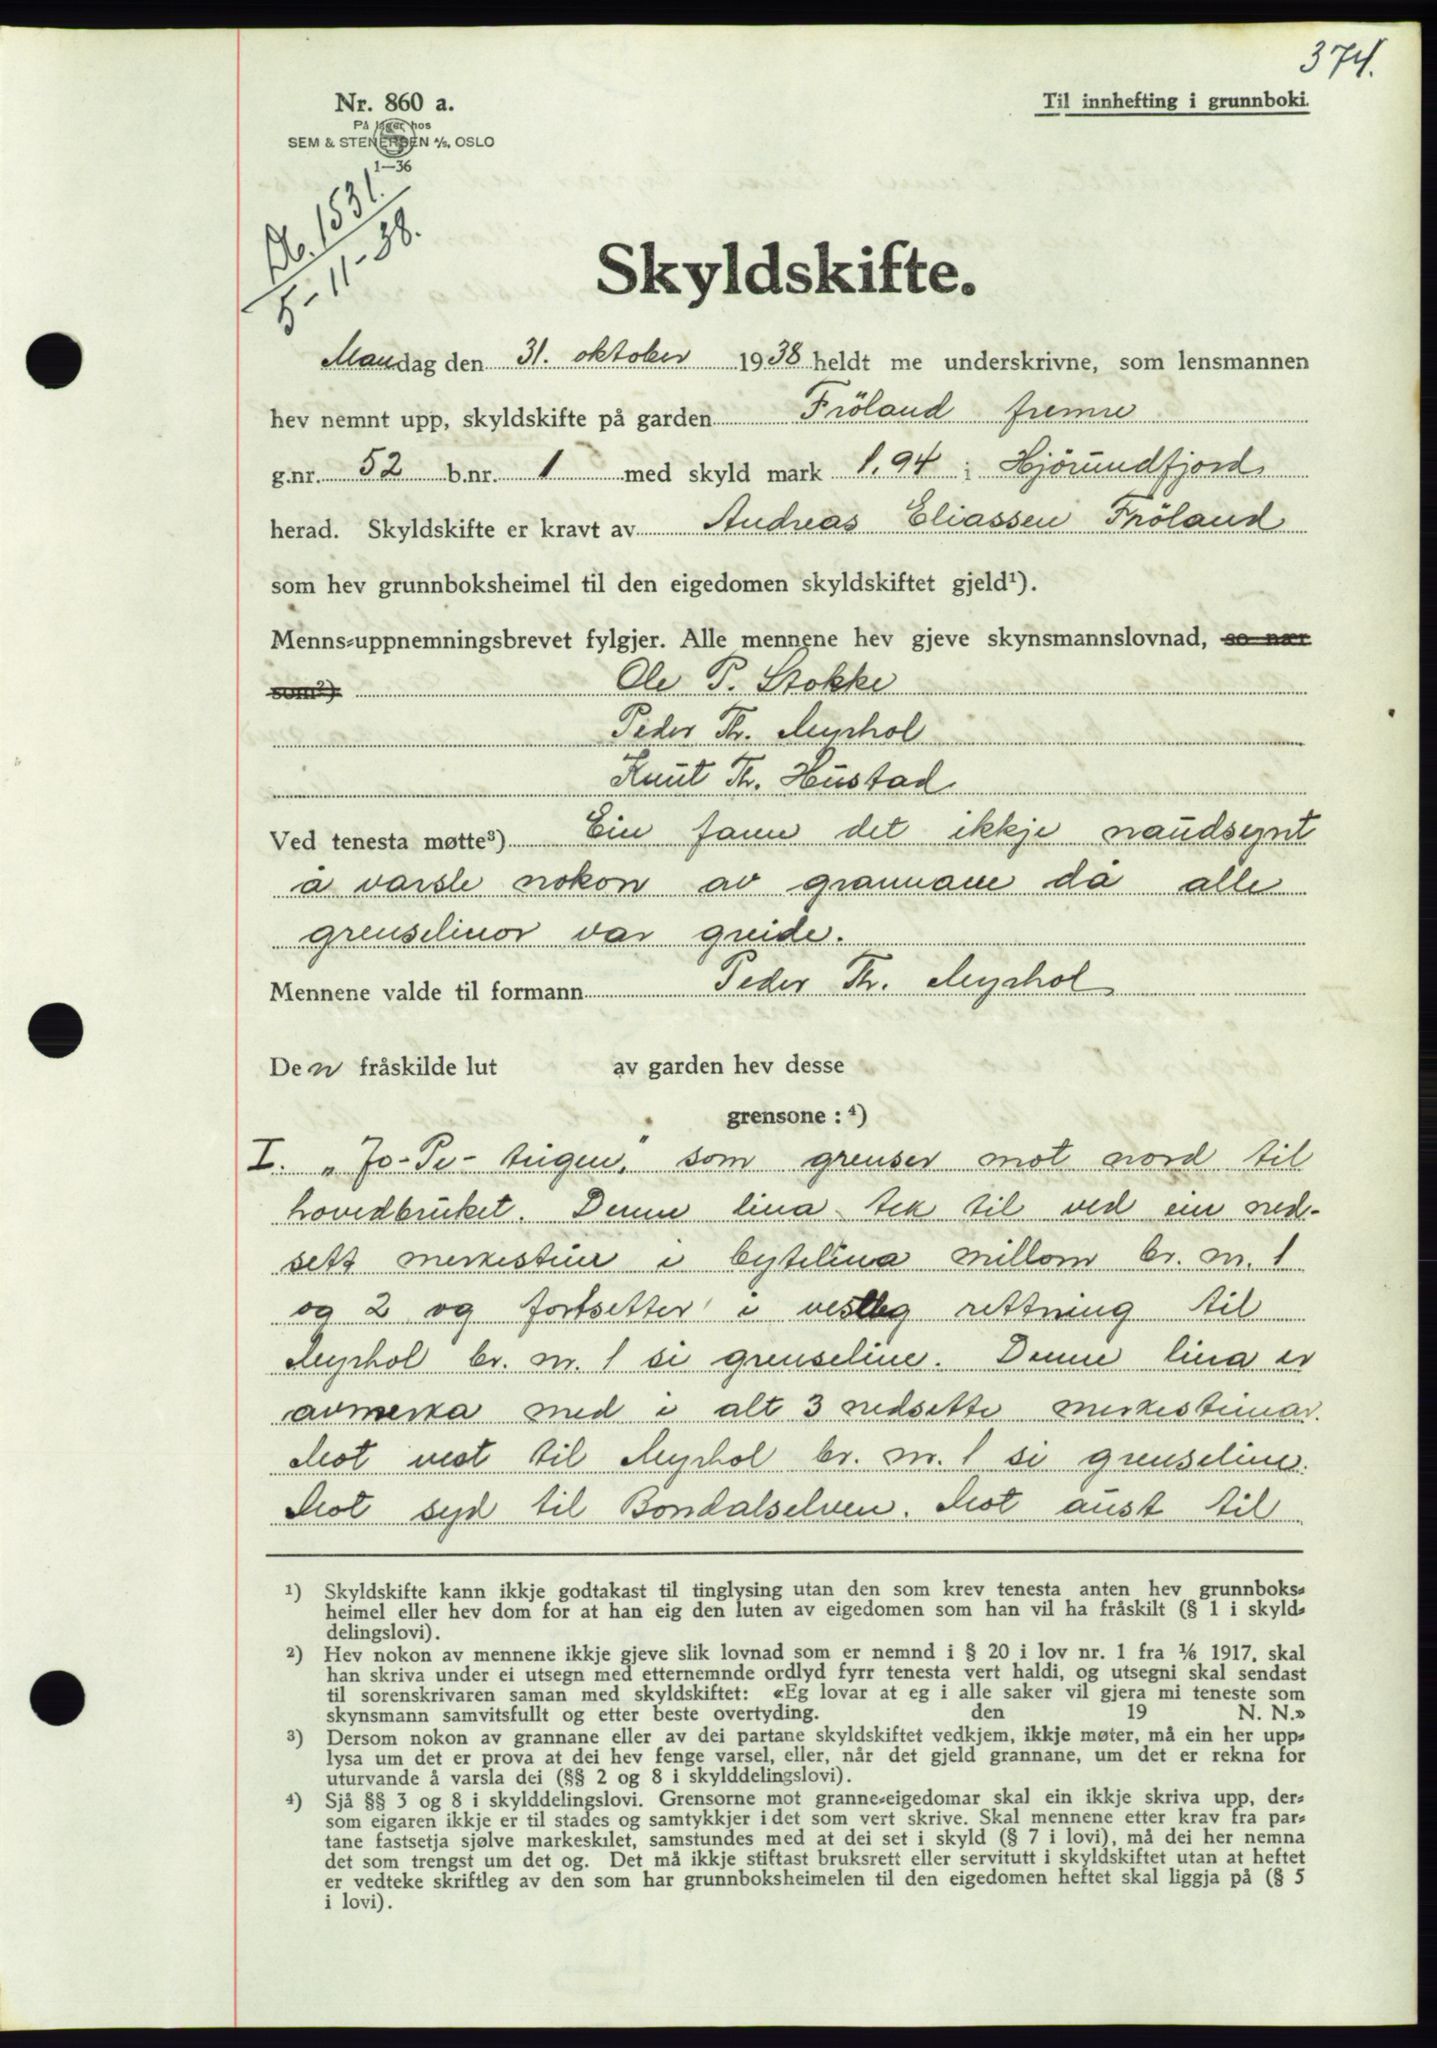 374.
Nr. 860 a.
Til innhefting i grunnboki.
På lager hos
SEM & STENERSEN A/S, OSLO
1—36
Db. 1531.
5-11-38.
Skyldskifte.
Mandag den 31. oktober 1938 heldt me underskrivne, som lensmannen
hev nemnt upp, skyldskifte på garden Fröland fremre
g.nr. 52 b.nr. 1 med skyld mark 1,94 i Hjörundfjord
herad. Skyldskifte er kravt av Andreas Eliassen Fröland
som hev grunnboksheimel til den eigedomen skyldskiftet gjeld¹).
Menns-uppnemningsbrevet fylgjer. Alle mennene hev gjeve skynsmannslovnad, so nær
som²) Ole P. Stokke
Peder Th. Myrhol
Knut Th. Hustad
Ved tenesta møtte³) Ein fann det ikkje naudsynt
å varsle nokon av grannane då alle
grenselinor var greide.
Mennene valde til formann Peder Th. Myrhol
Den fråskilde lut av garden hev desse
grensone : ⁴)
I. „Jo-Pe-teigen," som grenser mot nord til
hovedbruket. Denne lina tek til ved ein ned-
sett merkestein i bytelina millom br. nr. 1
og 2 og fortsetter i vestleg rettning til
Myrhol br. nr. 1 si grenseline. Denne lina er
avmerka med i alt 3 nedsette merkesteinar.
Mot vest til Myrhol br. nr. 1 si grenseline.
Mot syd til Bondalselven. Mot aust til
¹) Skyldskifte kann ikkje godtakast til tinglysing utan den som krev tenesta anten hev grunnboks-
heimel eller hev dom for at han eig den luten av eigedomen som han vil ha fråskilt (§ 1 i skyld-
delingslovi).
²) Hev nokon av mennene ikkje gjeve slik lovnad som er nemnd i § 20 i lov nr. 1 fra 1/6 1917, skal
han skriva under ei utsegn med etternemnde ordlyd fyrr tenesta vert haldi, og utsegni skal sendast
til sorenskrivaren saman med skyldskiftet: «Eg lovar at eg i alle saker vil gjera mi teneste som
skynsmann samvitsfullt og etter beste overtyding. den 19 N. N.»
³) Dersom nokon av grannane eller av dei partane skyldskiftet vedkjem, ikkje møter, må ein her upp-
lysa um det er prova at dei hev fenge varsel, eller, når det gjeld grannane, um det er rekna for
uturvande å varsla dei (§§ 2 og 8 i skylddelingslovi).
⁴) Sjå §§ 3 og 8 i skylddelingslovi. Grensorne mot granne-eigedomar skal ein ikkje skriva upp, der-
som eigaren ikkje er til stades og samtykkjer i det som vert skrive. Skal mennene etter krav fra par-
tane fastsetja sjølve markeskilet, samstundes med at dei set i skyld (§ 7 i lovi), må dei her nemna
det som trengst um det og. Det må ikkje stiftast bruksrett eller servitutt i skyldskiftet utan at heftet
er vedteke skriftleg av den som har grunnboksheimelen til den eigedomen heftet skal liggja på (§ 5
i lovi).